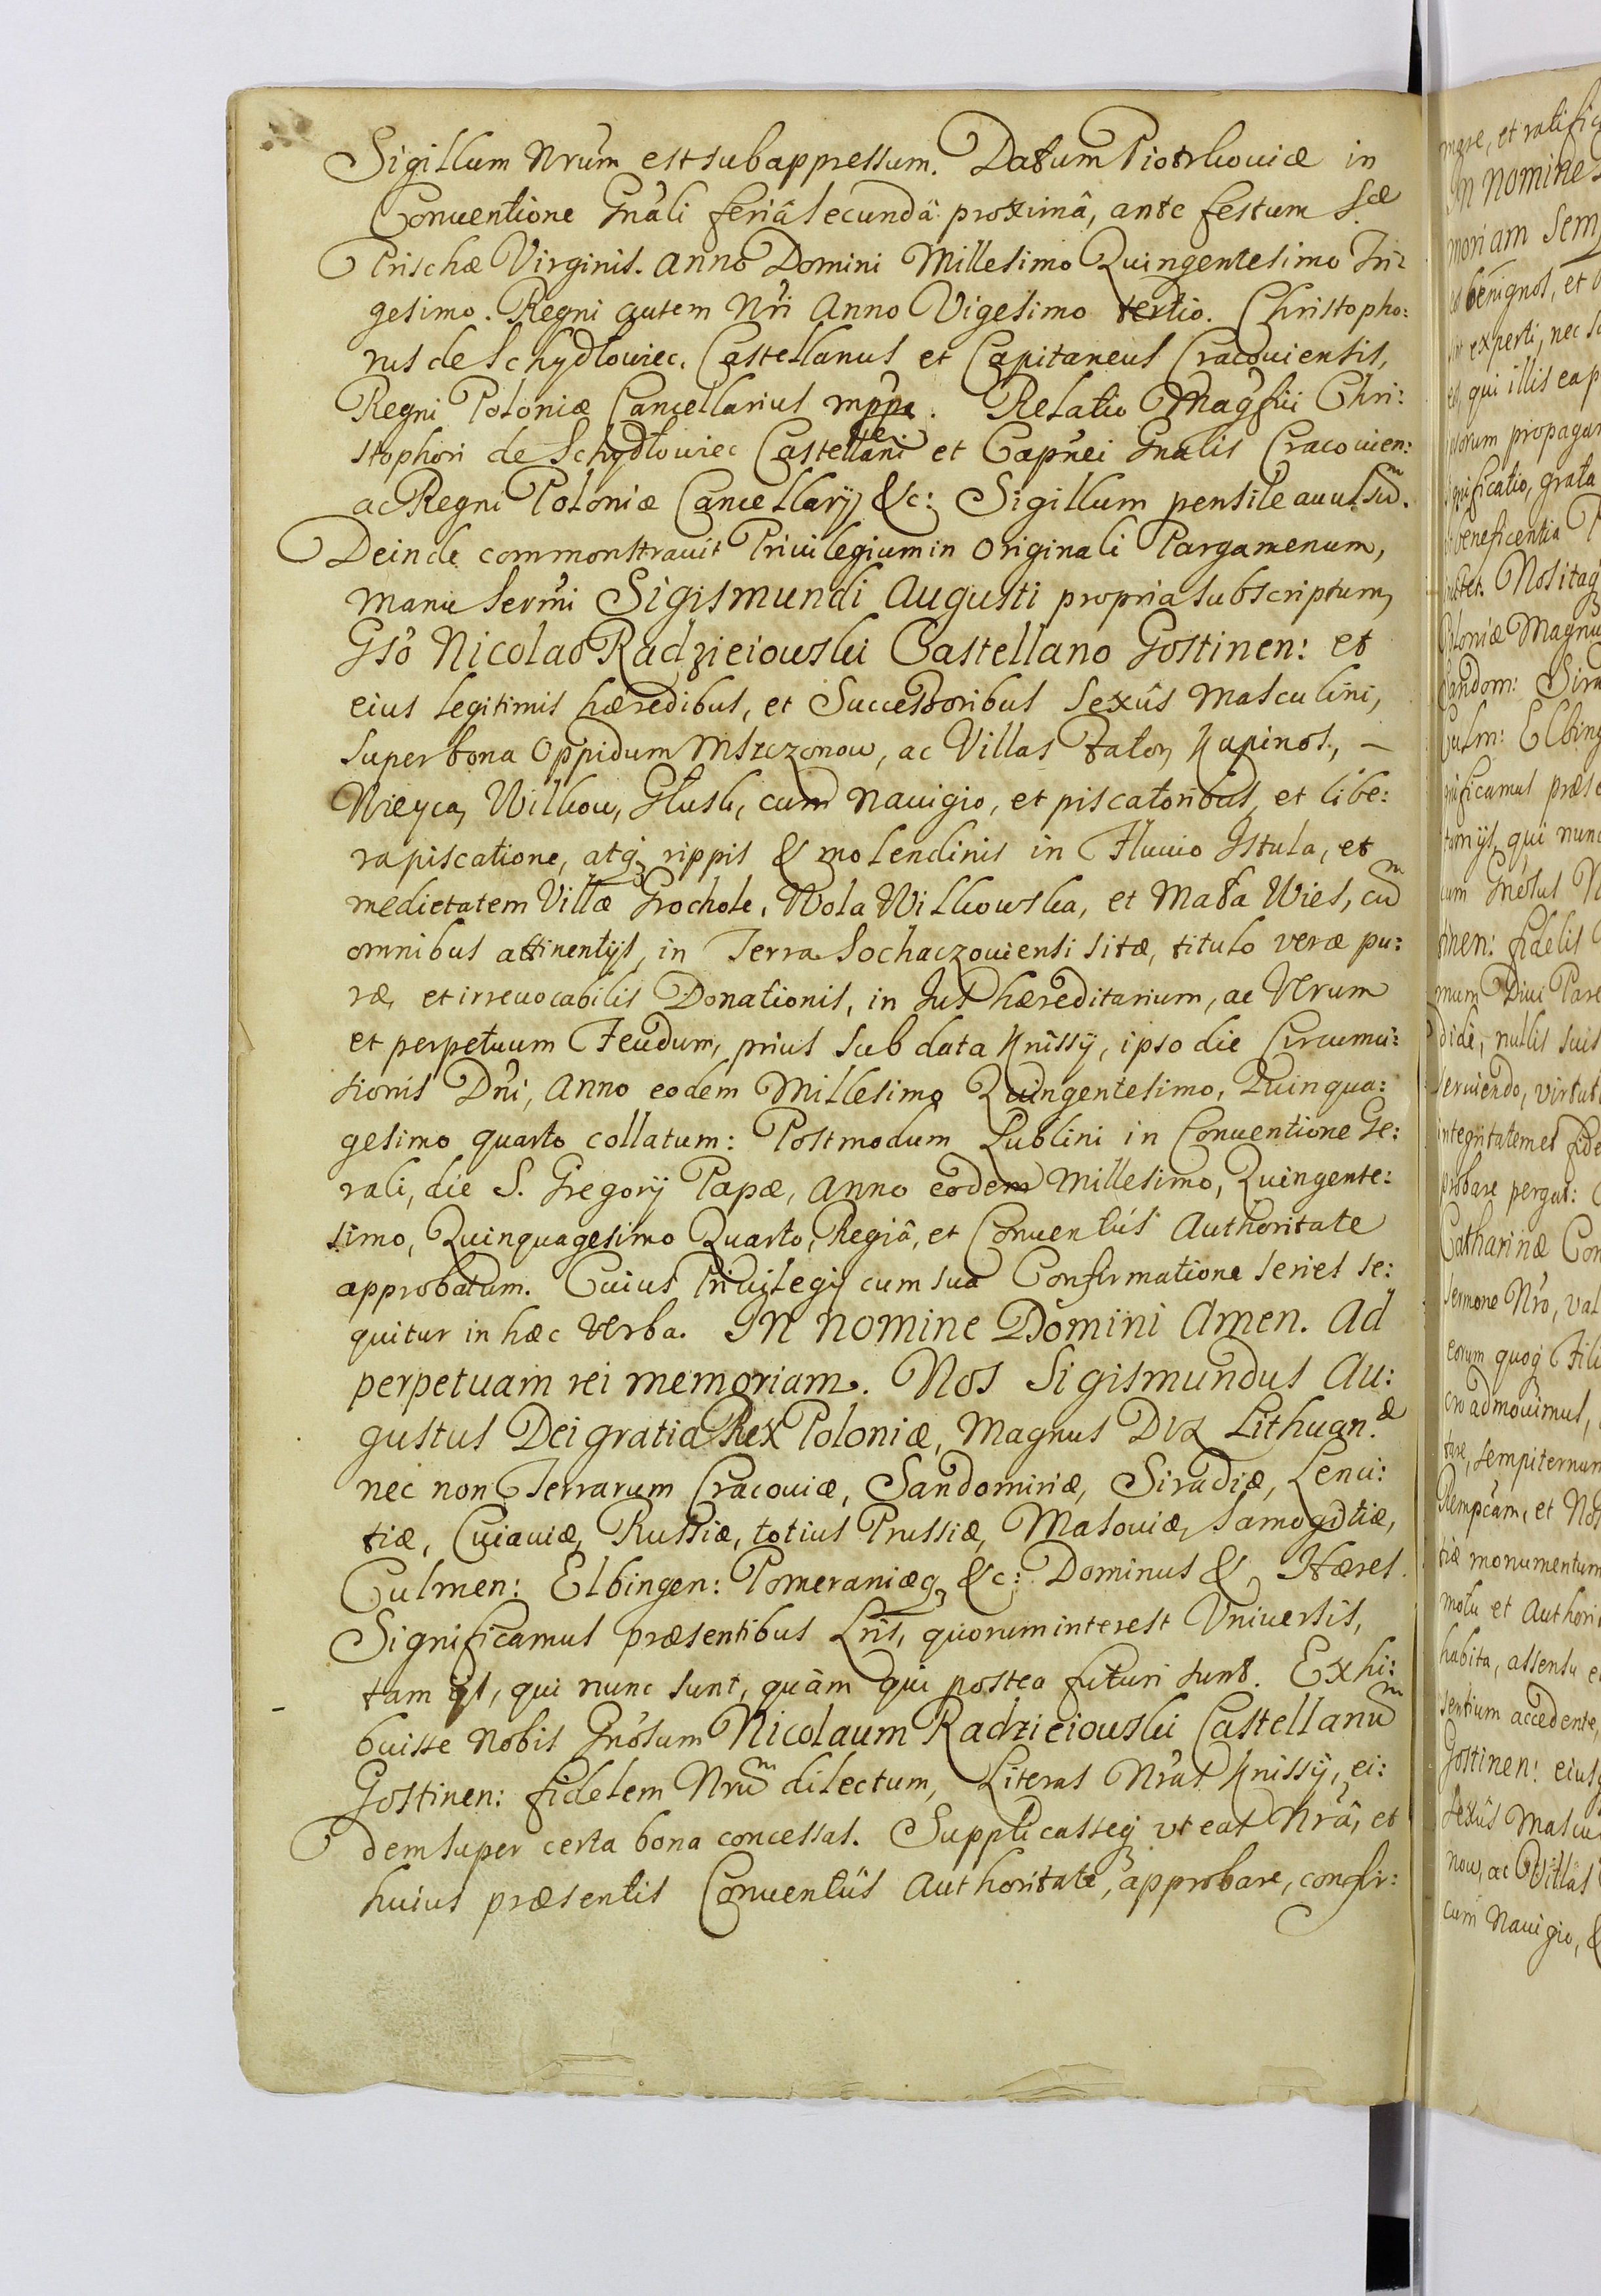 Sigillum Nrum est subappressum. Datum Piotrkouiæ in
Conuentione Gnali feriâ secundâ proximâ, ante festum Scæ
Prischæ Virginis. Anno Domini Millesimo Quingentesimo Tri:
gesimo. Regni autem Nri Anno Vigesimo tertio. Christopho:
rus de Schydłowiec, Castellanus et Capitaneus Cracouiensis,
Regni Poloniæ Cancellarius mppa. Relatio Magfici Chri:
stophori de Schydłowiec Castellani et Capnei Gnalis Cracouien:
ac Regni Poloniæ Cancellarij &c: Sigillum pensile auulsum.
Deinde commonstrauit Priuilegium in Originali Pargamenum,
manu Sermi Sigismundi Augusti propria subscriptum,
Gso Nicolao Radzieiowski Castellano Gostinen: et
eius legitimis hæredibus, et Successoribus Sexûs Masculini,
super bona Oppidum Mszczonow, ac Villas Fałor, Kapinos, –
Nieyca, Wilkow, Głusk, cum Nauigio, et piscatoribus, et libe:
ra piscatione, atq rippis & molendinis in Fluuio Istula, et
medietatem Villæ Grochole, Wola Wilkowska, et Mała Wies, cum
omnibus attinentijs, in Terra Sochaczouiensi sitæ, titulo veræ pu:
ræ, et irreuocabilis Donationis, in Jus hæreditarium, ac Verum
et perpetuum Feudum, prius sub data Knissy, ipso die Circumci:
sionis Dni, Anno eodem Millesimo Quingentesimo, Quinqua:
gesimo quarto collatum: Postmodum Lublini in Conuentione Ge:
rali, die S. Gregorij Papæ, Anno eodem Millesimo, Quingente:
simo, Quinquagesimo Quarto, Regiâ, et Conuentûs Authoritate
approbatum. Cuius Priuilegij cum sua Confirmatione series se:
quitur in hæc Verba. In Nomine Domini Amen. Ad
perpetuam rei memoriam. Nos Sigismundus Au:
gustus Dei gratia Rex Poloniæ, Magnus Dux Lithuan:æ
nec non Terrarum Cracouiæ, Sandomiriæ, Siradiæ, Lenci:
tiæ, Cuiauiæ, Russiæ, totius Prussiæ, Masouiæ, Samogitiæ,
Culmen: Elbingen: Pomeraniæq &c: Dominus & Hæres.
Significamus præsentibus Lris, quorum interest Vniuersis,
tam ijs, qui nunc sunt, quàm qui postea futuri sunt. Exhi:
buisse Nobis Gnosum Nicolaum Radzieiowski Castellanum
Gostinen: fidelem Nrum dilectum, Literas Nras Knissy, ei:
dem super certa bona concessas. Supplicasseq vt eas Nrâ, et
huius præsentis Conuentûs Authoritate, approbare, confir:
mare, et ratific
In Nomine
moriam Sem
benignos, et
experti, nec
qui illis ea p
propagan
significatio, grata
beneficentia
Nos itaq
Poloniæ Magnu
Sandom: Sira
Culm: Elbing
nificamus præse
tam ijs, qui nunc
cum Gnosus N
tinen: fidelis
mum Diui Pare
didit, nullis suis
seruiendo, virtut
integritatem et fide
probare pergat:
Catharinæ Con
sermone Nro, val
eorum quoq Fili
admouimus,
sempiternum
Rempcam, et Nos
tiæ monumentum
motu et Authori
habita, assensu e
sentium accedente,
Gostinen: eius
Sexûs Mascu
now, ac Villas
cum Nauigio, &